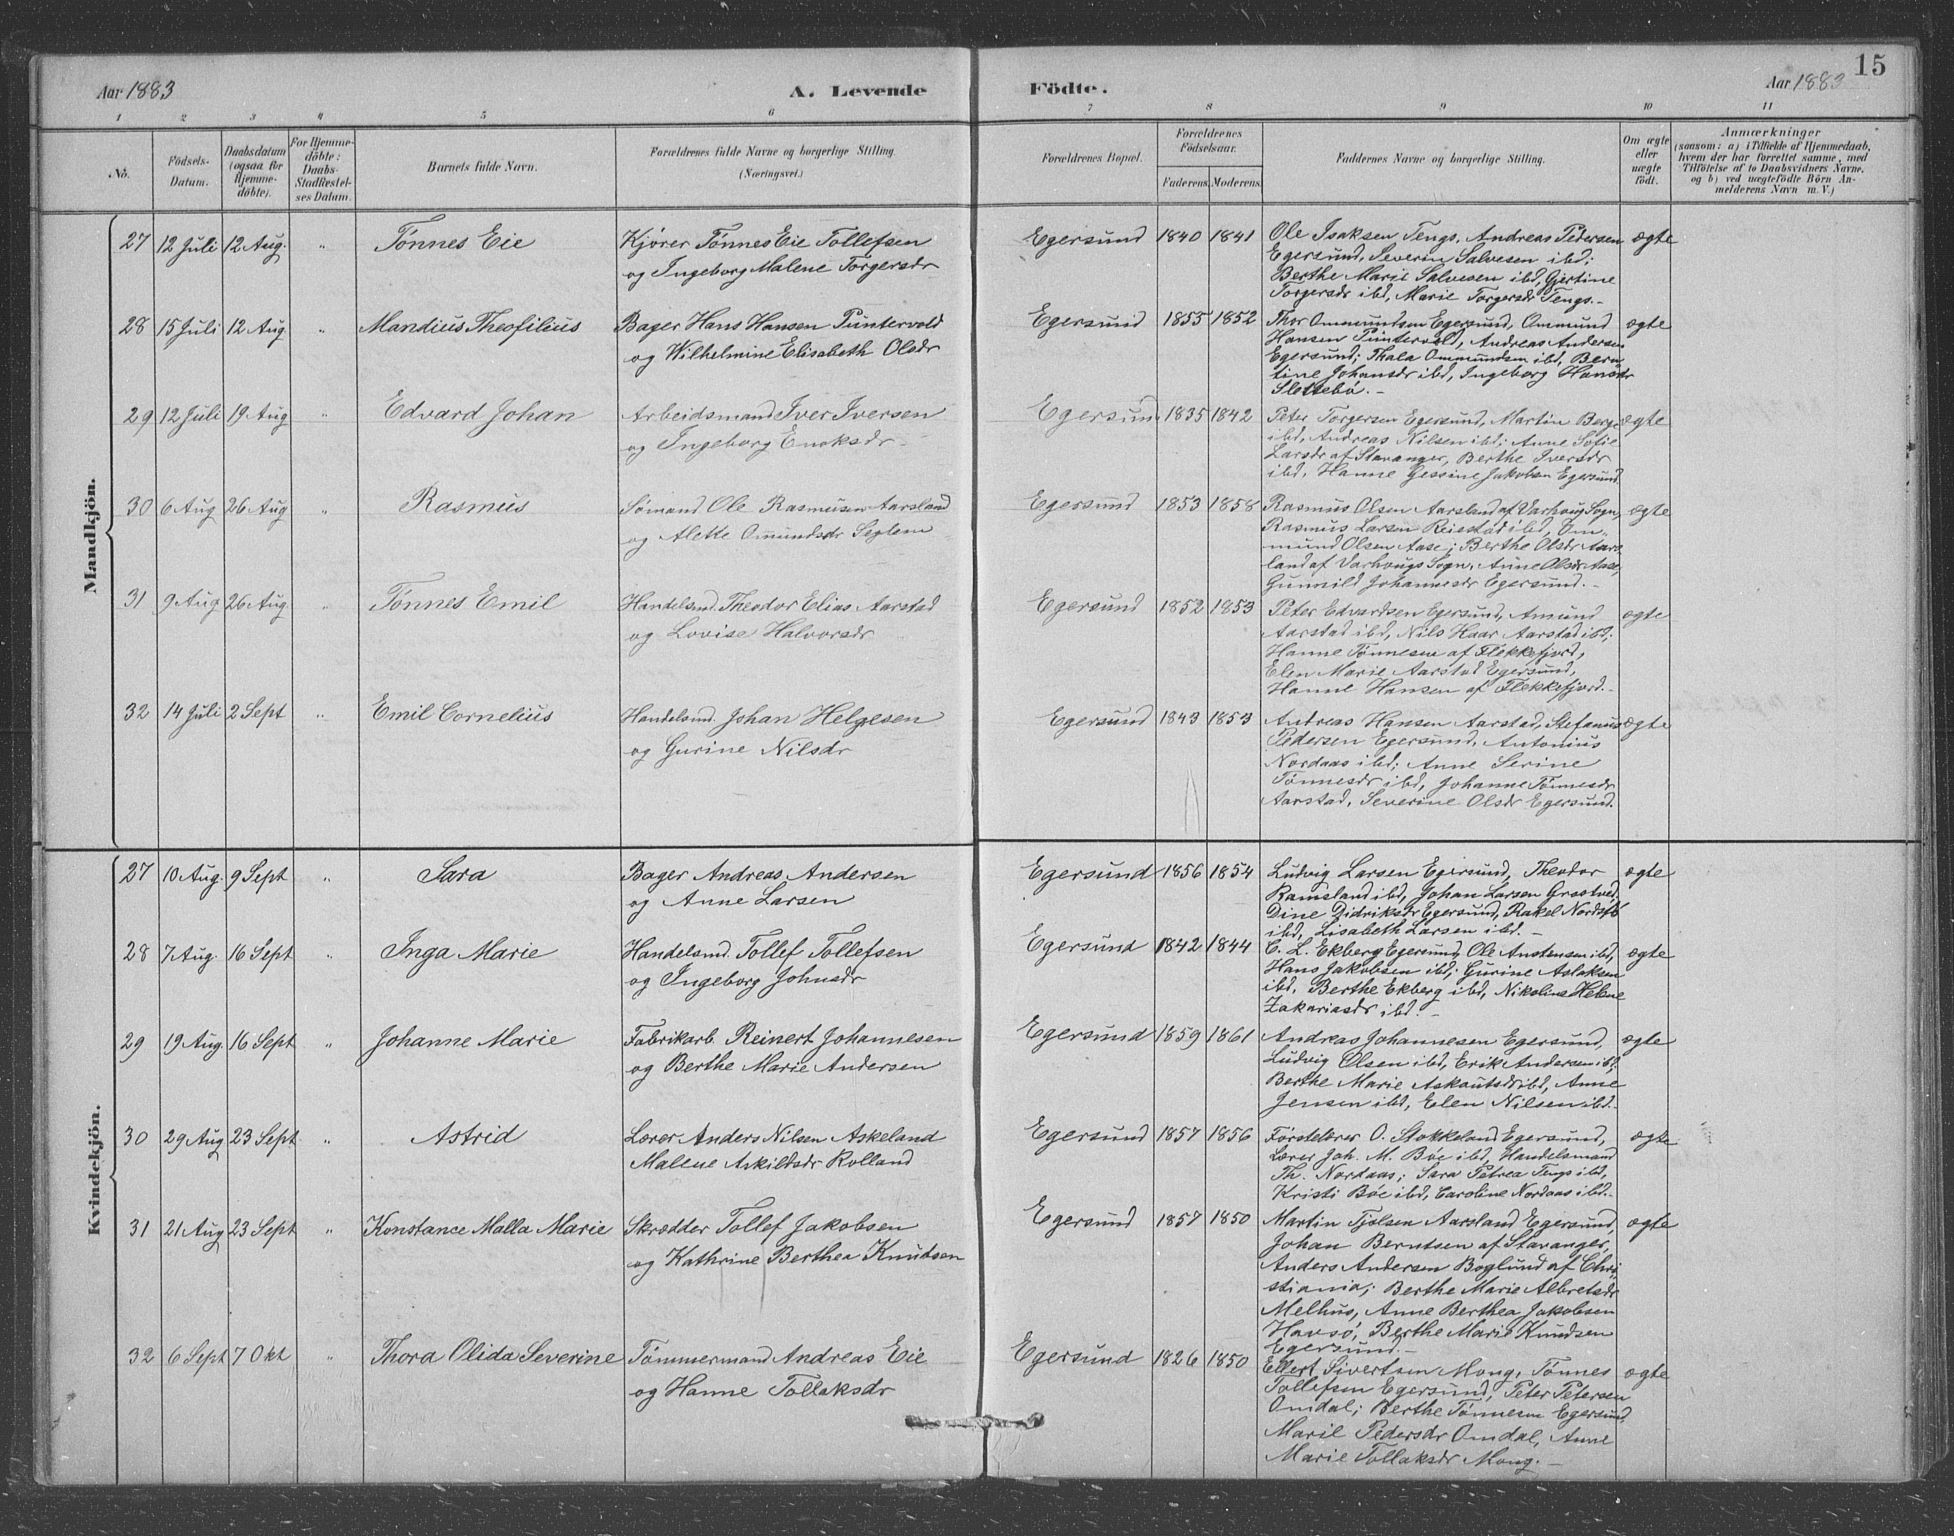 15
Aar 1883 A. Levende Födte. Aar 1883
1 2 3 4 5 6 7 8 9 10 11
No. Födsels-Datum. Daabsdatum (ogsaa för Hjemme-döbte). For Hjemme-döbte: Daabs-Stadfæstel-ses Datum. Barnets fulde Navn. Forældrenes fulde Navne og borgerlige Stilling. (Næringsvei.) Forældrenes Bopæl. Forældrenes Födselsaar. Faderens. Moderens. Faddernes Navne og borgerlige Stilling. Om ægte eller uægte födt. Anmærkninger (saasom: a) i Tilfælde af Hjemmedaab, hvem der har forrettet samme, med Tilföielse af to Daabsvidners Navne, og b) ved uægtefödte Börn An-melderens Navn m. V.)
Mandkjön.
27 12 Juli 12 Aug. " Tønnes Eie Kjører Tønnes Eie Tollefsen Egersund 1840 1841 Ole Isaksen Tengs, Andreas Pedersen ægte
og Ingeborg Malene Torgersdr Egersund, Severin Salvesen ibd;
Berthe Marie Salvesen ibd, Gjertine
Torgersdr ibd, Marie Torgersdr Tengs.-
28 15 Juli 12 Aug " Mandius Theofilius Bager Hans Hansen Puntervold Egersund 1855 1852 Thor Ommundsen Egersund, Ommund ægte
og Wilhelmine Elisabeth Olsdr Hansen Puntervold, Andreas Andersen
Egersund; Thala Ommundsen ibd, Bern-
tine Johansdr ibd, Ingeborg Hansdr
Slettebø.-
29 12 Juli 19 Aug " Edvard Johan Arbeidsmand Iver Iversen Egersund 1835 1842 Peter Torgersen Egersund, Martin Berge ægte
og Ingeborg Enoksdr ibd, Andreas Nilsen ibd; Anne Sofie
Larsdr af Stavanger, Berthe Iversdr
ibd, Hanne Gessine Jakobsen Egersund
30 6 Aug 26 Aug " Rasmus Sømand Ole Rasmusen Aarsland Egersund 1853 1858 Rasmus Olsen Aarsland af Varhoug Sogn, ægte
og Alette Omundsdr Seglem Rasmus Larsen Reiestad ibd, Om-
mund Olsen Aase; Berthe Olsdr Aars-
land af Varhougs Sogn, Anne Olsdr Aase,
Gunnild Johannesdr Egersund.-
31 9 Aug 26 Aug " Tønnes Emil Handelsmd. Theodor Elias Aarstad Egersund 1852 1853 Peter Edvardsen Egersund, Amund ægte
og Lovise Halvorsdr Aarstad ibd, Nils Haar Aarstad ibd;
Hanne Tønnesen af Flekkefjord,
Elen Marie Aarstad Egersund,
Hanne Hansen af Flekkefjord.-
32 14 Juli 2 Sept " Emil Cornelius Handelsmd. Johan Helgesen Egersund 1843 1853 Andreas Hansen Aarstad, Stefanus ægte
og Gurine Nilsdr Pedersen Egersund, Antonius
Nordaas ibd; Anne Serine
Tønnesdr ibd, Johanne Tønnesdr
Aarstad, Severine Olsdr Egersund.
Kvindekjön.
27 10 Aug. 9 Sept " Sara Bager Andreas Andersen Egersund 1856 1854 Ludvig Larsen Egersund, Theodor ægte
og Anne Larsen Ramsland ibd, Johan Larsen Grøstved,
Dine Didriksdr Egersund, Rakel Nordsjø
ibd, Lisabeth Larsen ibd.-
28 7 Aug. 16 Sept " Inga Marie Handelsmd. Tollef Tollefsen Egersund 1842 1844 C. L. Ekberg Egersund, Ole Austensen ibd, ægte
og Ingeborg Johnsdr Hans Jakobsen ibd; Gurine Aslaksen
ibd, Berthe Ekberg ibd, Nikoline Helene
Zakariasdr ibd.-
29 19 Aug. 16 Sept " Johanne Marie Fabrikarb. Reinert Johannesen Egersund 1859 1861 Andreas Johannesen Egersund, ægte
og Berthe Marie Andersen Ludvig Olsen ibd, Erik Andersen ibd;
Berthe Marie ibd, Anne
Jensen ibd, Elen Nilsen ibd.
30 29 Aug 23 Sept " Astrid Lærer Anders Nilsen Askeland Egersund 1857 1856 Førstelærer O. Stokkeland Egersund, ægte
Malene Askildsdr Rolland Lærer Joh. M. Bøe ibd, Handelsmand
Th. Nordaas; Sara Petrea Tengs ibd,
Kristi Bøe ibd, Caroline Nordaas ibd.-
31 21 Aug 23 Sept " Konstance Malla Marie Skrædder Tollef Jakobsen Egersund 1857 1850 Martin Tjølsen Aarsland Egersund, ægte
og Kathrine Berthea Knudsen Johan Berntsen af Stavanger,
Anders Andersen Boglund af Chri-
stiania; Berthe Marie Albretsdr
Melhus, Anne Berthea Jakobsen
Havsø, Berthe Marie Knudsen
Egersund.-
32 6 Sept 7 Okt " Thora Olida Severine Tømmermand Andreas Eie Egersund 1826 1850 Ellert Sivertsen Mong, Tønnes ægte
og Hanne Tollaksdr Tollefsen Egersund, Peter Petersen
Omdal; Berthe Tønnesen Egersund,
Maril Pedersdr Omdal, Anne
Marie Tollaksdr Mong.-